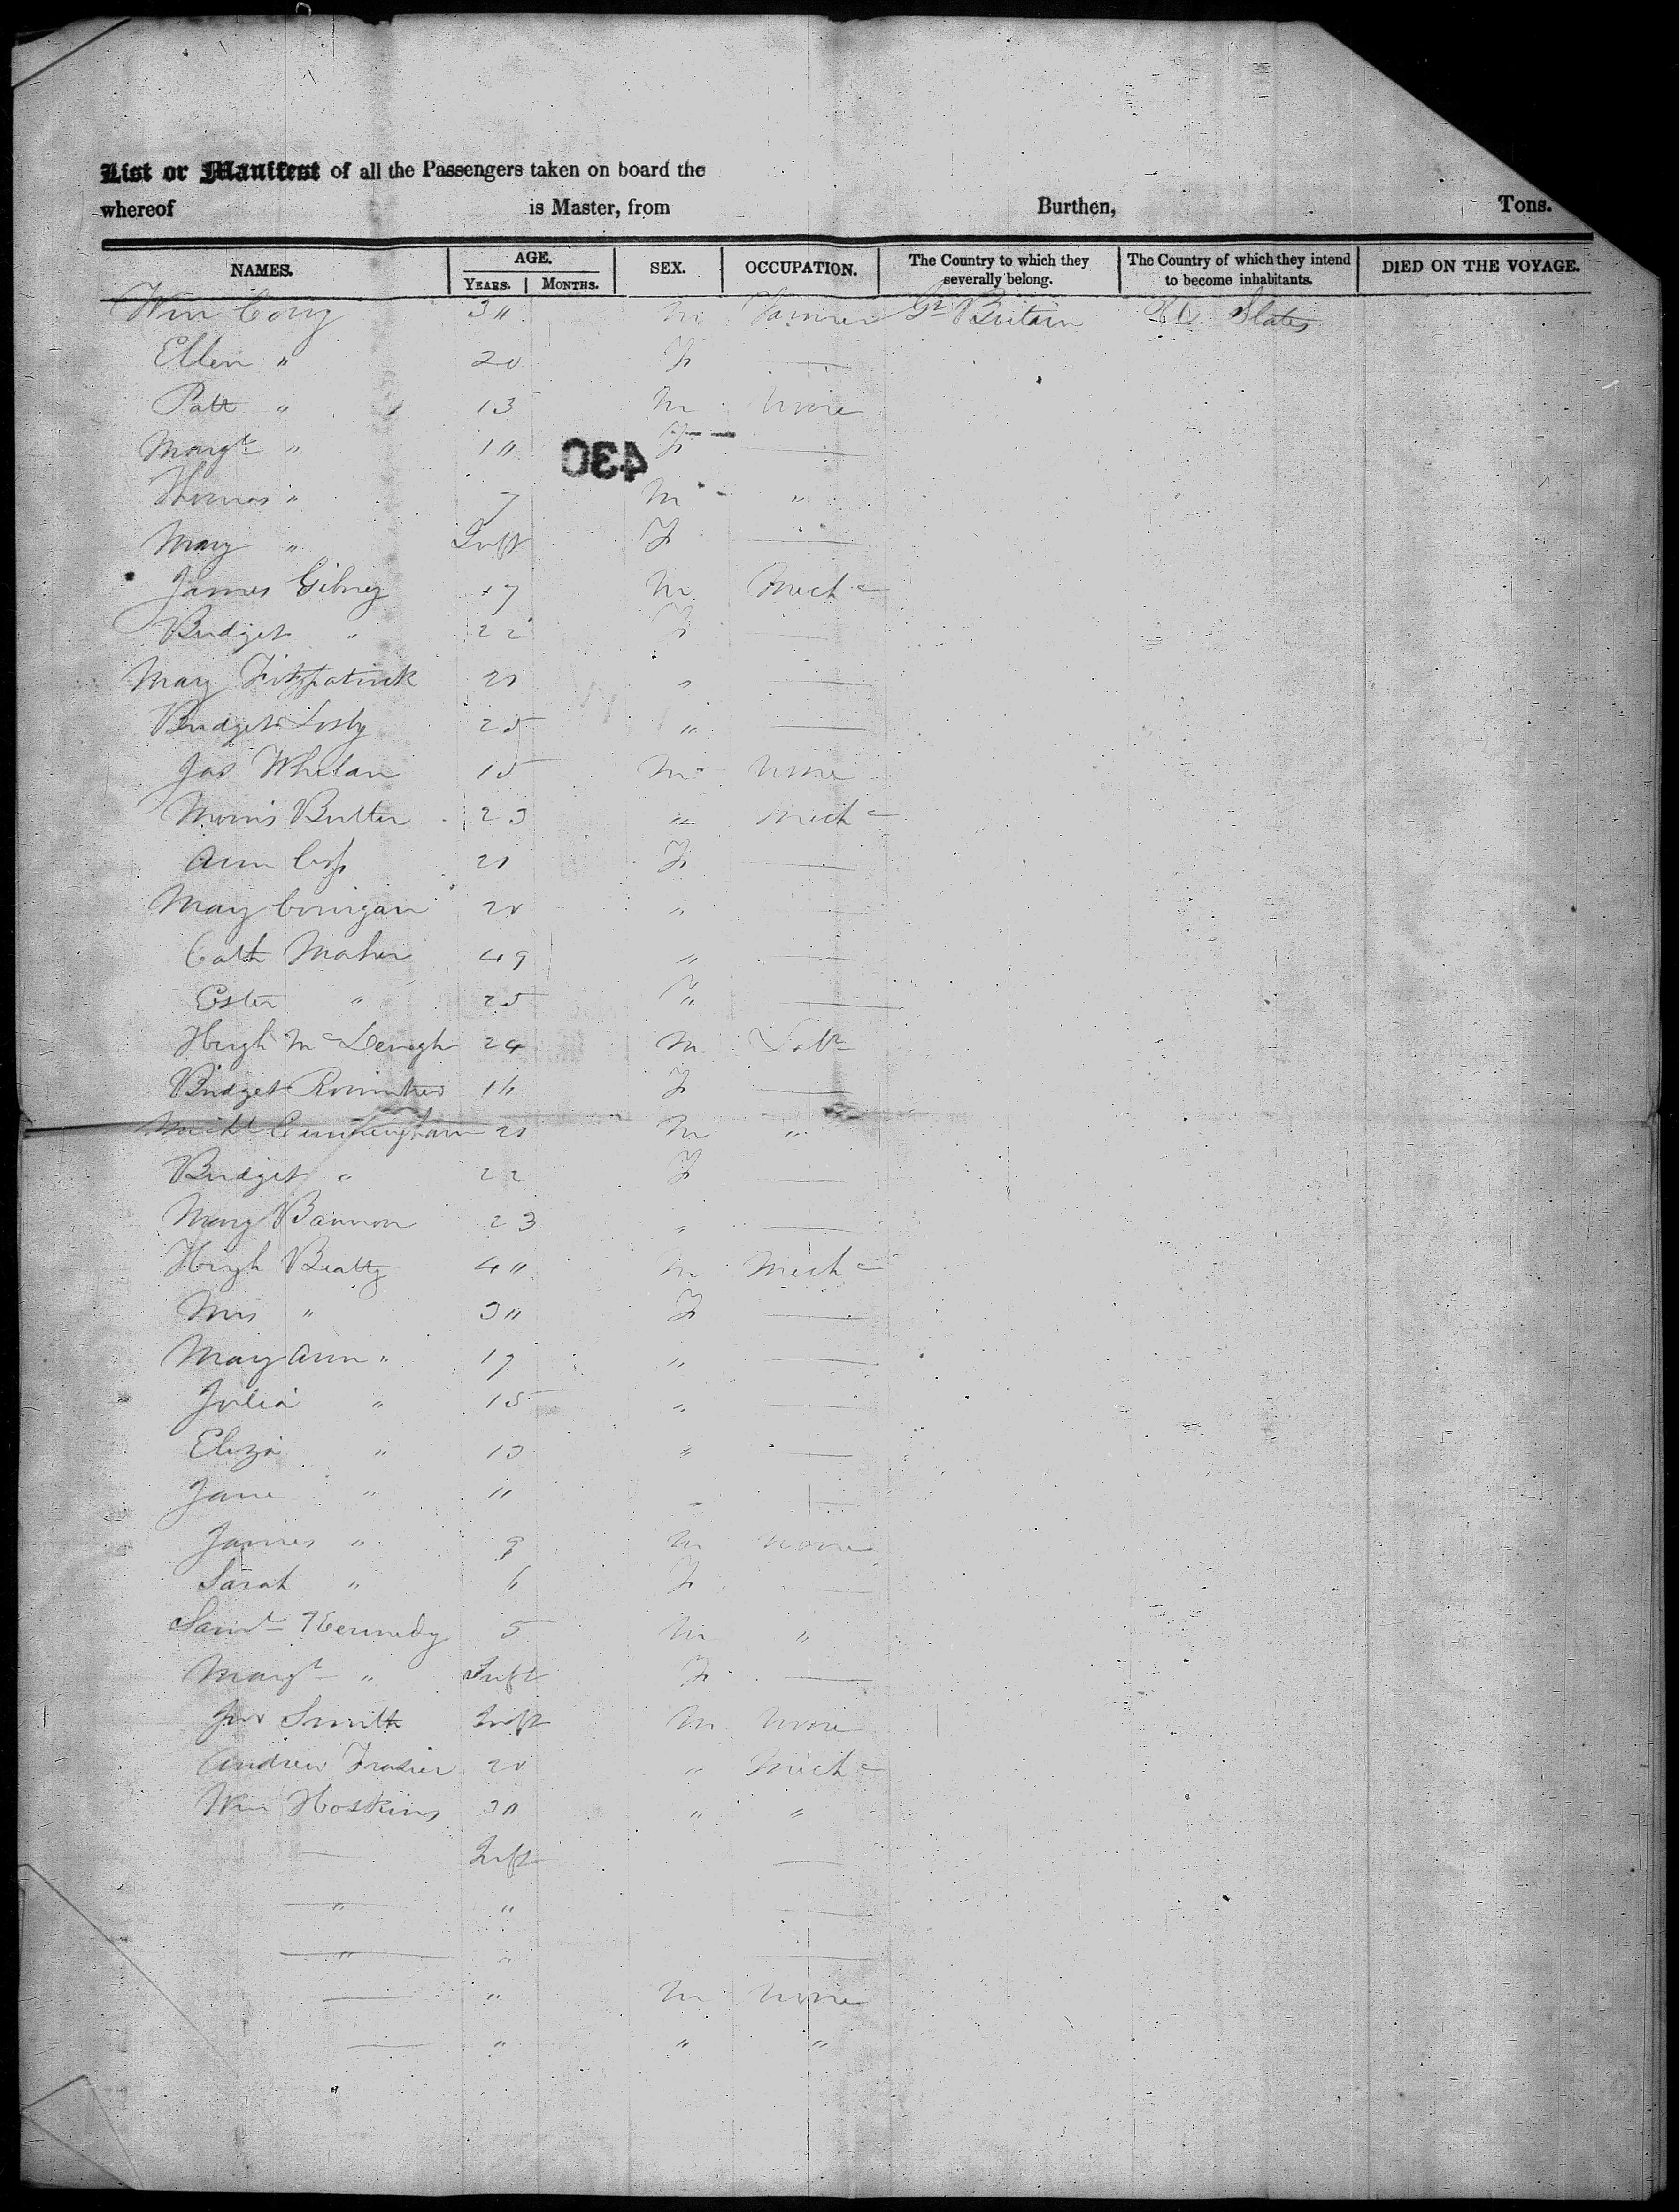 List or Manifest of all the Passengers taken on board the
whereof is Master, from Burthen, Tons.
NAMES. AGE. SEX. OCCUPATION. The Country to which they severally belong. The Country of which they intend to become inhabitants. DIED ON THE VOYAGE.
YEARS. MONTHS.
Wm 3" M Farmer Gt Britain U States
Ellen " 20 F —
Patt " 13 M None
Margt " 1" F —
430
Thomas " 7 M "
Mary " Inft F —
James Gibney M Mechc
Bridget " 22 F —
Mary Fitzpatrick 21 " —
Bridget 25 " —
Jas Whelan 15 M None
Morris Butler 23 " Mechc
Ann 21 F —
Mary Corrigan 20 " —
Cath Maher 49 " —
Ester " 25 " —
Hugh Mc 24 M Labr
Bridget 16 F —
Michl Cunningham 21 M "
Bridget " 22 F —
Mary Bannon 23 " —
Hugh Beatty 4" M Mechc
Mrs " 3" F —
Mary Ann " 17 " —
Julia " 15 " —
Eliza " 13 " —
Jane " 11 " —
James " 9 M None
Sarah " 6 F —
Saml Kennedy 5 M "
Margt " Inft F —
Jno Smith Inft M None
Andrew Frasier 20 " Mechc
Wm Hoskins 3" " "
— Inft —
" " —
" " —
— " M None
— " " "